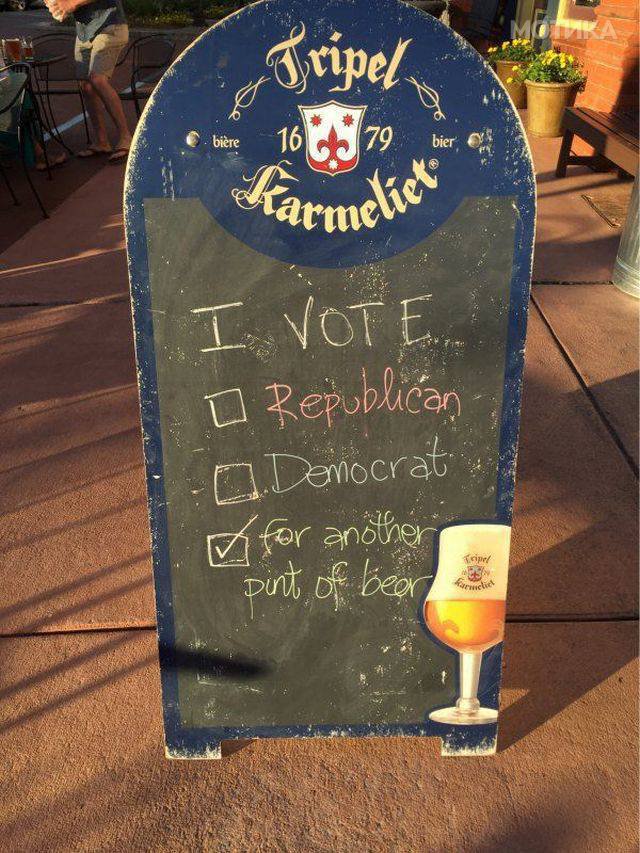 МОТИКА
Tripel
bière 16 79 bier
Karmeliet®
I VOTE
Republican
Democrat
for another
pint of beer
Tripel
Karmeliet